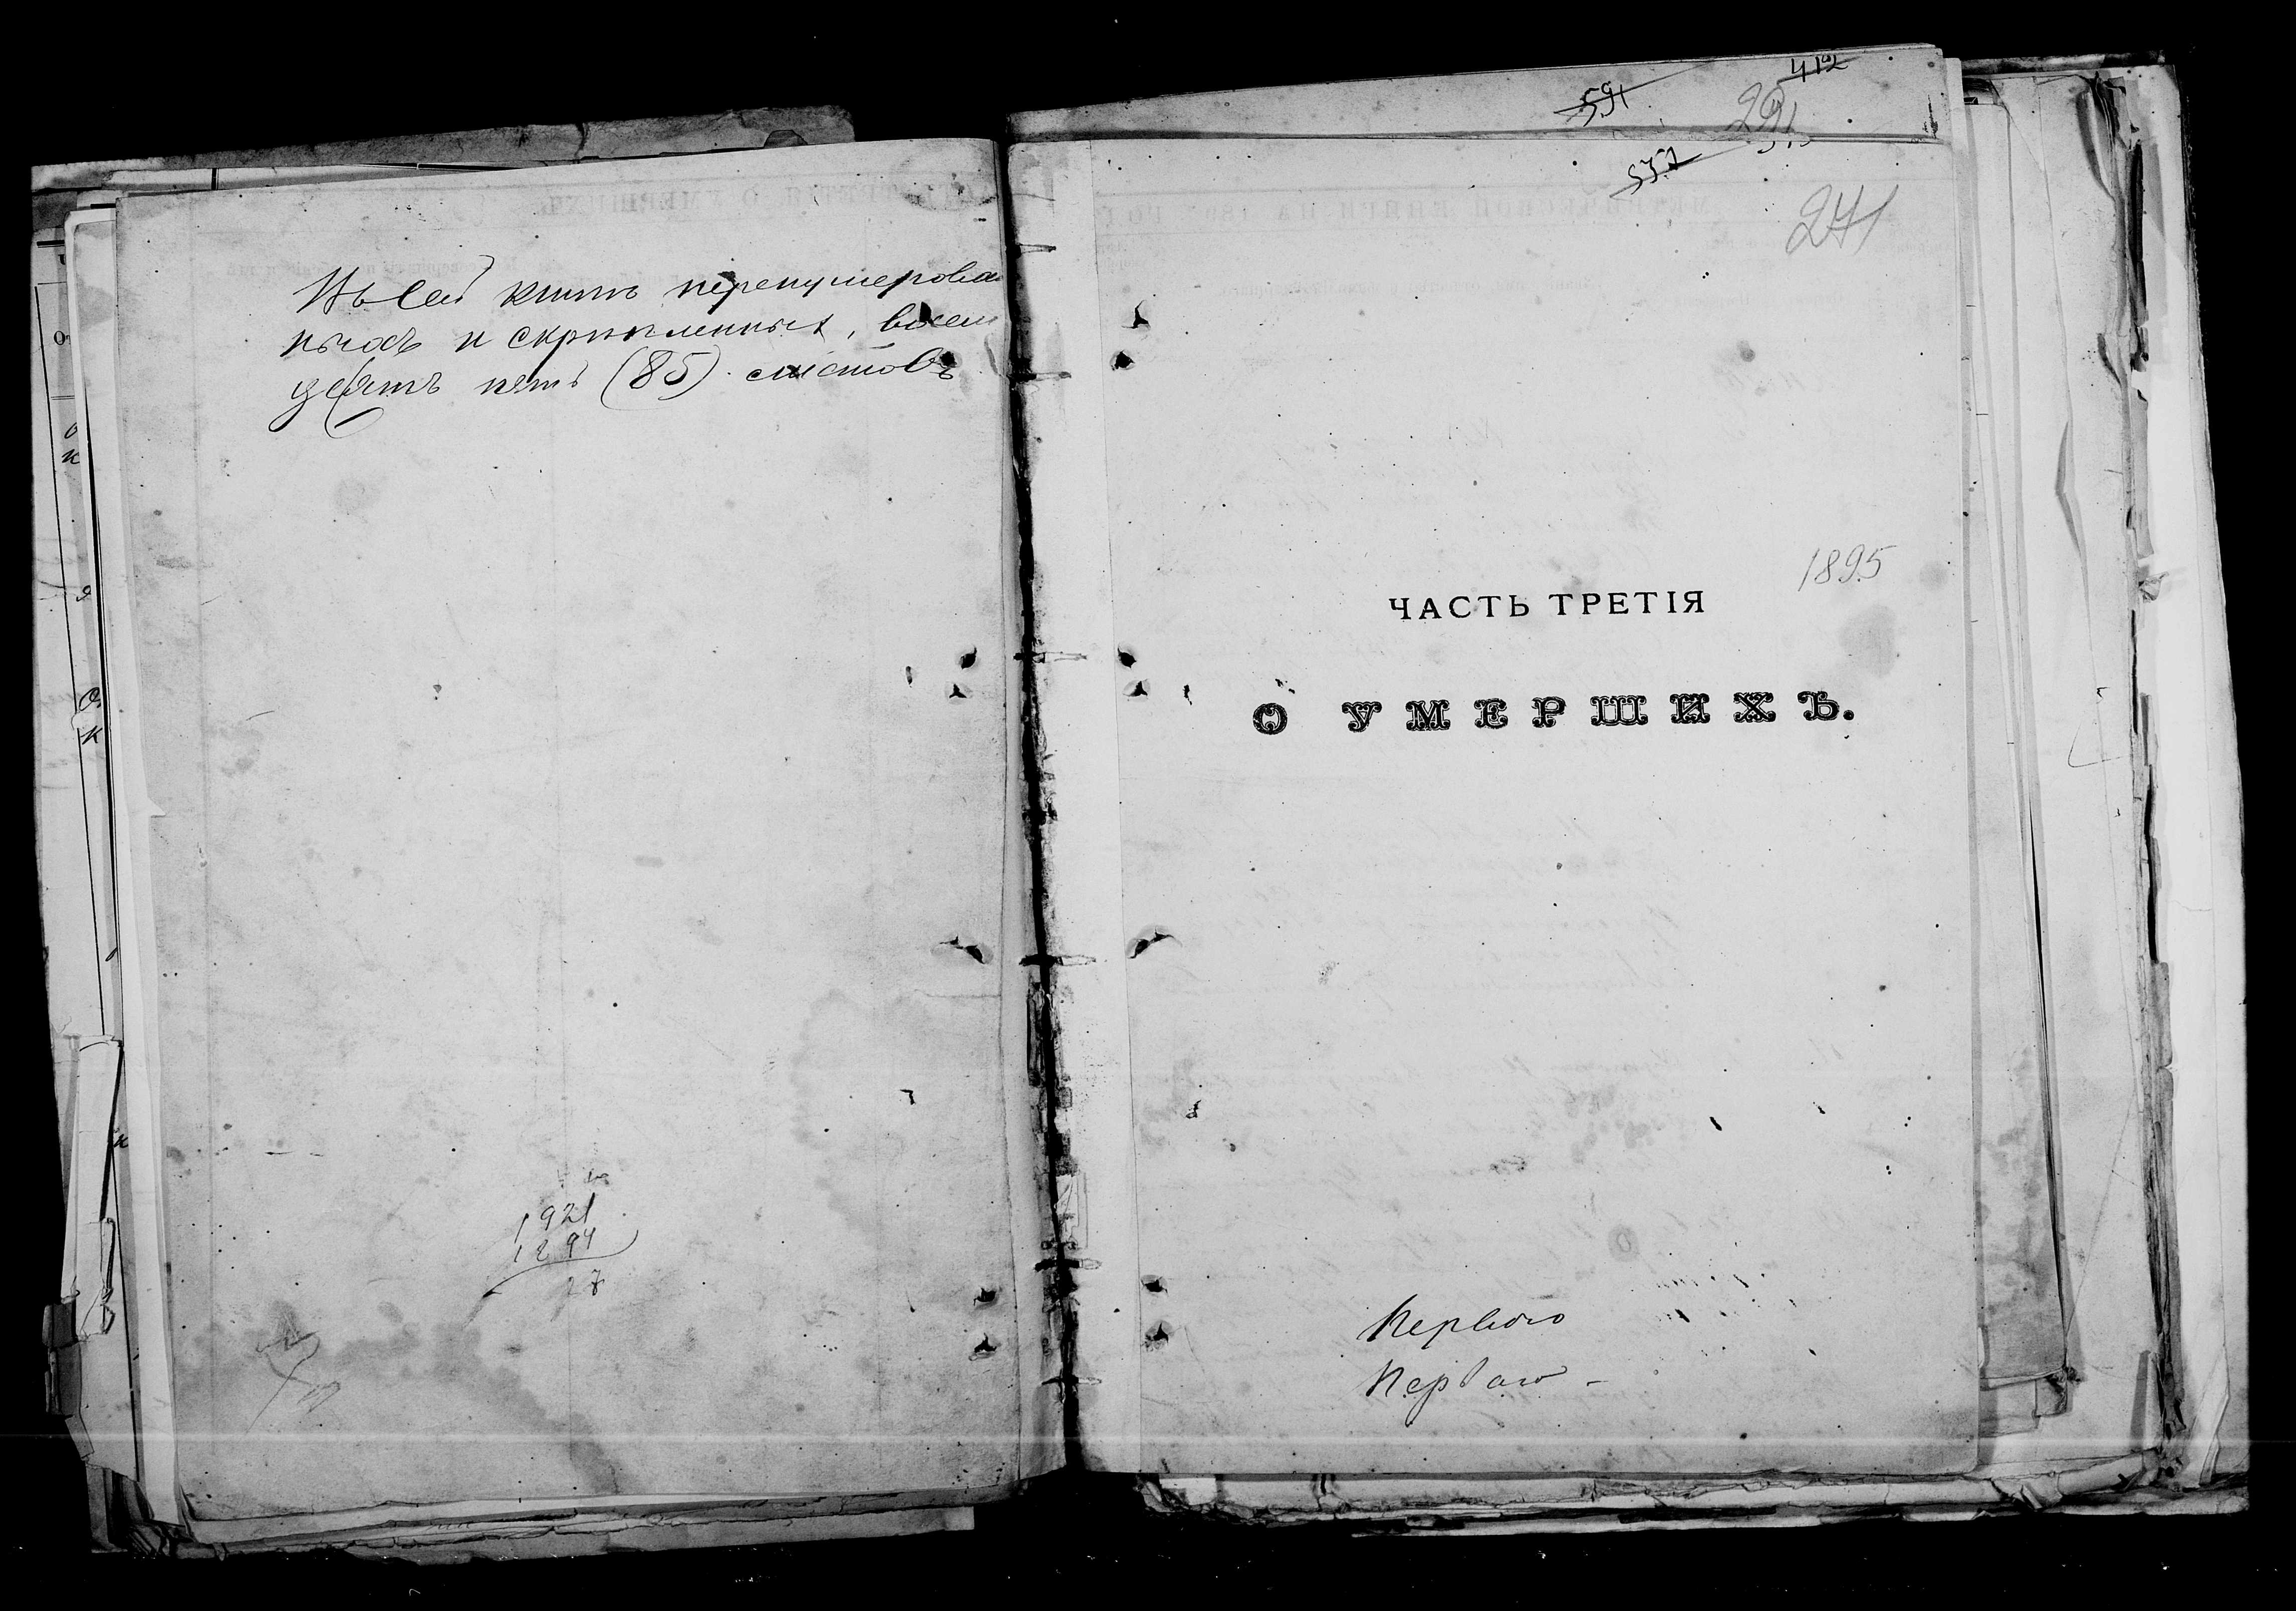 Въ сей книгѣ перенумерован
ныхъ и скрѣпленныхъ, восем
десятъ пять (85) листовъ
1921
1894
27
412
591
291
557
271
1895
ЧАСТЬ ТРЕТІЯ
О УМЕРШИХЪ.
Первого
Перваго -